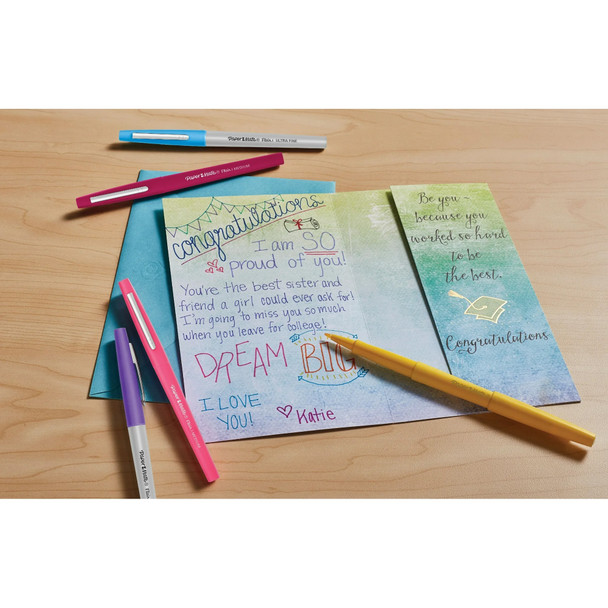 Paper Mate Flair ULTRA FINE
Paper Mate Flair
congratulations
I am SO
proud of you!
You're the best sister and
friend a girl could ever ask for!
I'm going to miss you so much
when you leave for college!
DREAM BIG
I LOVE
YOU!
Katie
Be you -
because you
worked so hard
to be
the best.
Congratulations
Paper Mate Flair
Paper Mate Flair